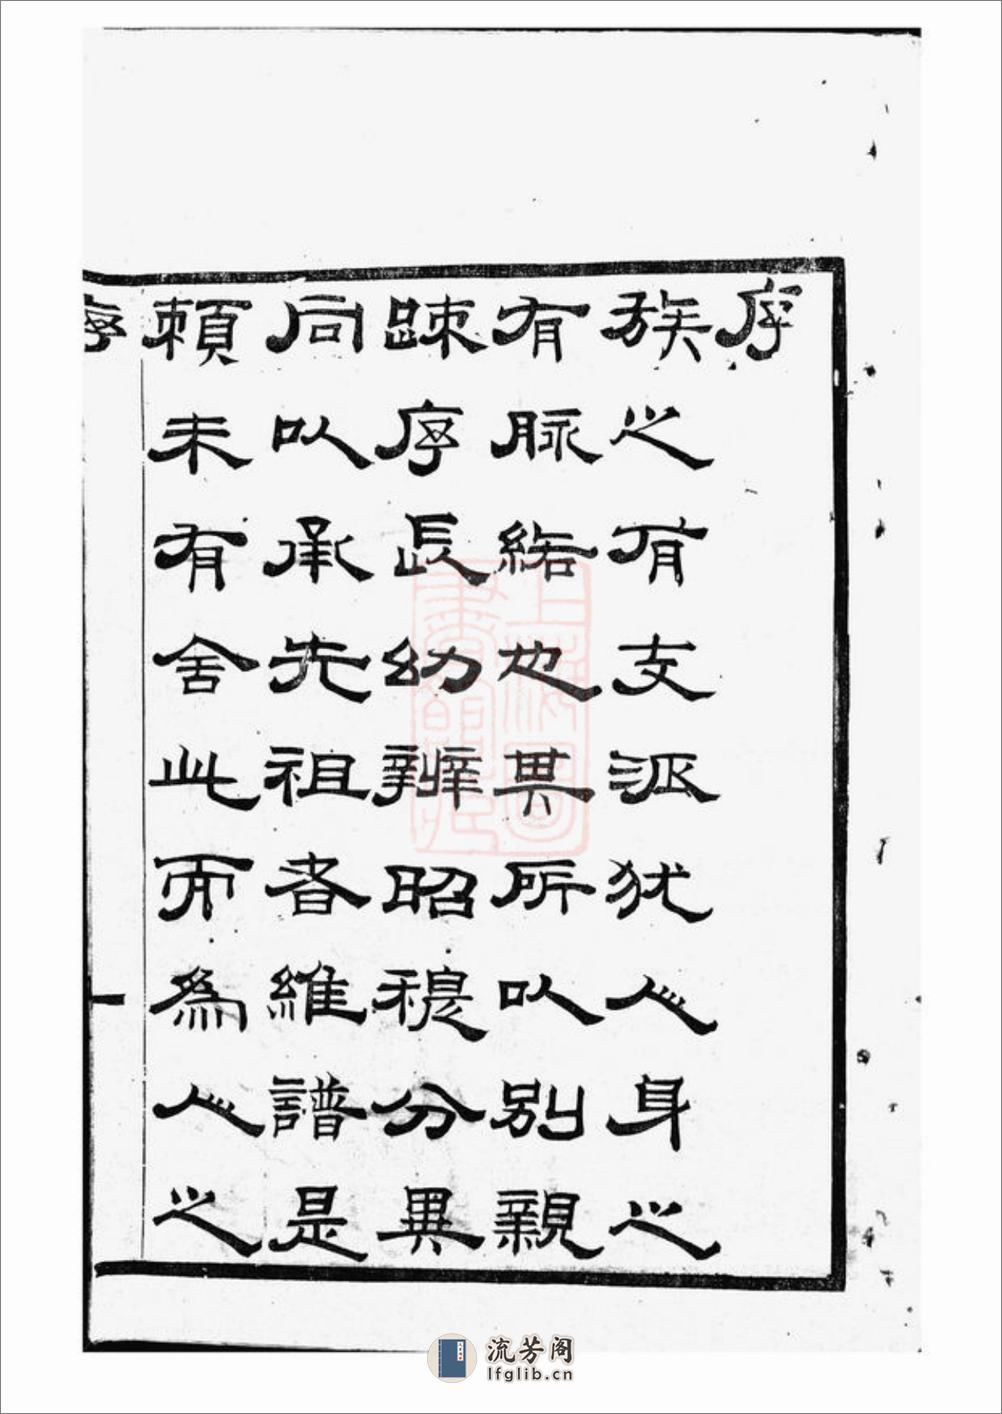 序
族之有支派犹人身之
有脉络也其所以别親
踈序長幼辨昭穆分異
同以承先祖者維譜是
頼未有舍此而為人之
序
上海圖
書館藏
流芳阁
lfglib.cn